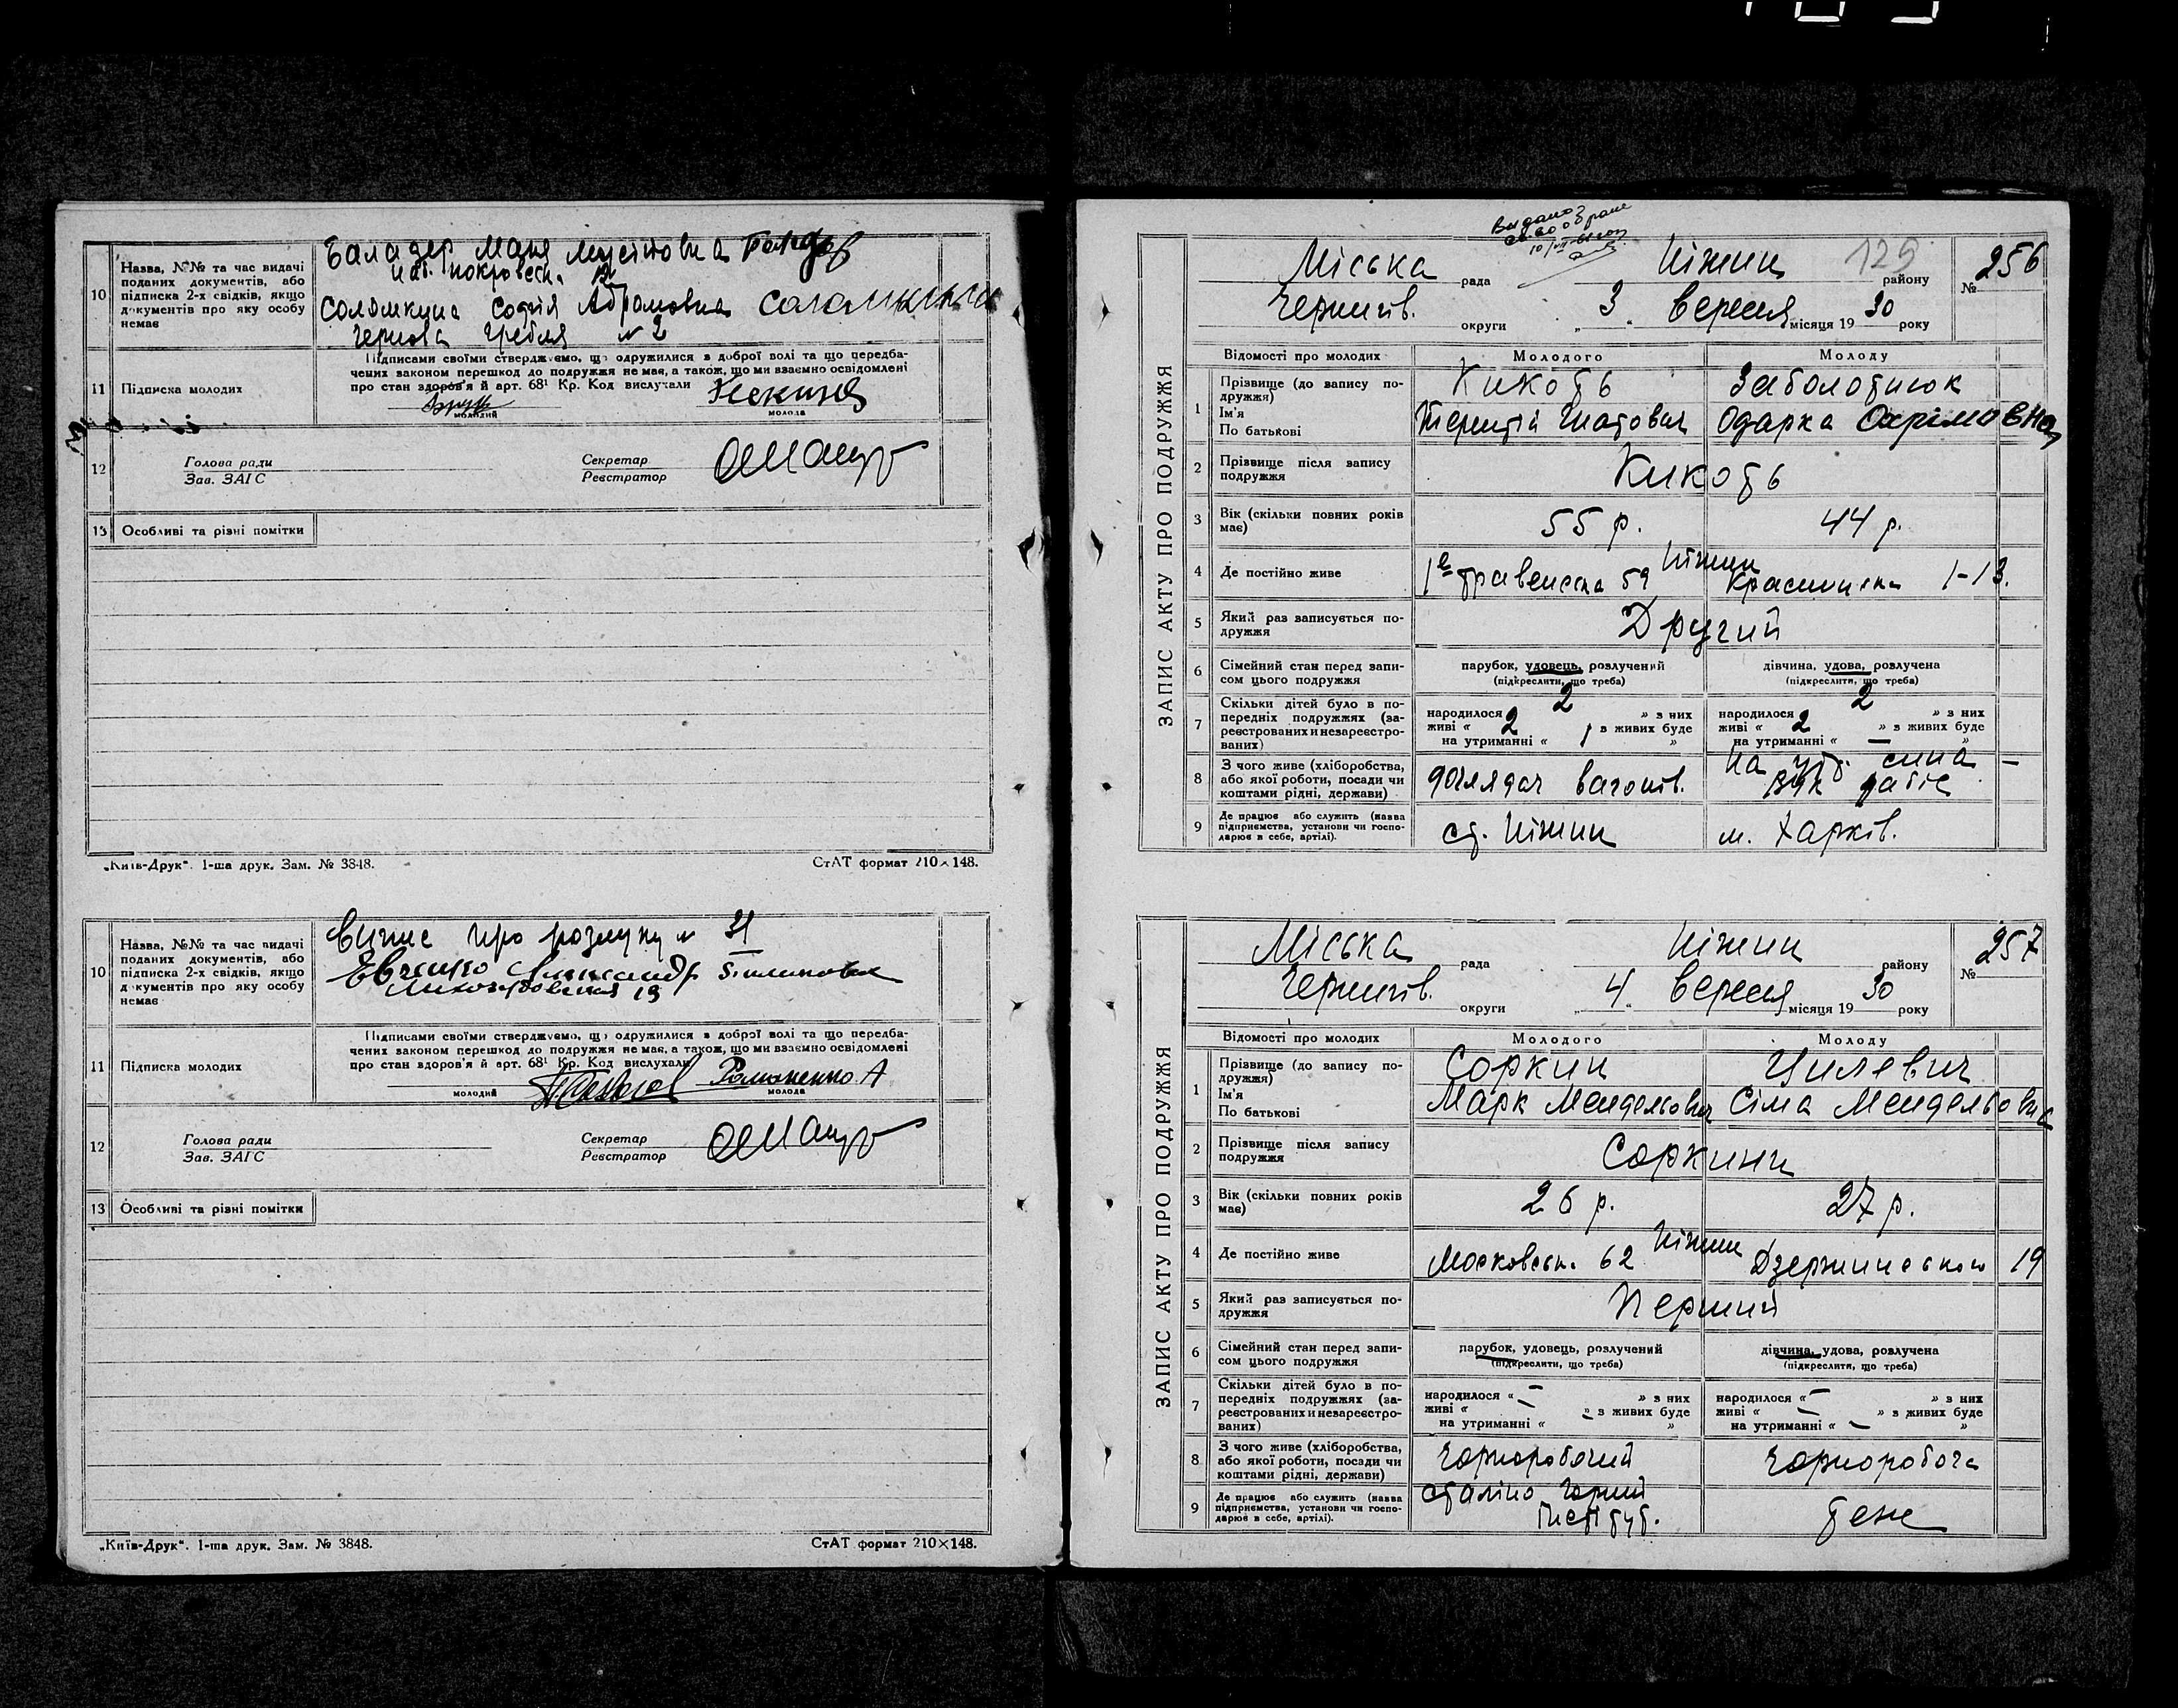 10 Назва, №№ та час видачі
поданих документів, або
підписка 2-х свідків, якщо
документів про яку особу
немає
Соломкина Софія Абрамовна
Гребля № 2
11 Підписка молодих
Підписами своїми стверджуємо, що одружилися в доброї волі та що передба-
чених законом перешкод до подружжя не має, а також, що ми взаємно освідомлені
про стан здоров'я й арт. 68¹ Кр. Код вислухали
молодий молода
12 Голова ради Секретар
Зав. ЗАГС Реєстратор
13 Особливі та різні помітки
„Київ-Друк“. 1-ша друк. Зам. № 3848. СтАТ формат 210×148.
10 Назва, №№ та час видачі
поданих документів, або
підписка 2-х свідків, якщо
документів про яку особу
немає
Випис про розлуку № 31
19
11 Підписка молодих
Підписами своїми стверджуємо, що одружилися в доброї волі та що передба-
чених законом перешкод до подружжя не має, а також, що ми взаємно освідомлені
про стан здоров'я й арт. 68¹ Кр. Код вислухали
Романенко А
молодий молода
12 Голова ради Секретар
Зав. ЗАГС Реєстратор
13 Особливі та різні помітки
„Київ-Друк“. 1-ша друк. Зам. № 3848. СтАТ формат 210×148.
Видано
125
ЗАПИС АКТУ ПРО ПОДРУЖЖЯ
Міська рада Ніжин району № 256
Чернигів. округи „ 3 “ Вересня місяця 1930 року
Відомості про молодих Молодого Молоду
1 Прізвище (до запису по-
дружжя) Кикоть Заболотнюк
Ім'я
По батькові Терентій Гнатович Одарка Охрімовна
2 Прізвище після запису
подружжя Кикоть
3 Вік (скільки повних років
має) 55 р. 44 р.
4 Де постійно живе Ніжин
1е травенська 59 1-13.
5 Який раз записується по-
дружжя Другий
6 Сімейний стан перед запи-
сом цього подружжя
парубок, удовець, розлучений дівчина, удова, розлучена
(підкреслити, що треба) (підкреслити, що треба)
7 Скільки дітей було в по-
передніх подружжях (за-
реєстрованих и незареєстро-
ваних)
народилося 2 » з них народилося 2 » з них
живі « 2 » в живих буде живі « 2 » в живих буде
на утриманні « 1 » на утриманні « — »
8 З чого живе (хліборобства,
або якої роботи, посади чи
коштами рідні, держави)
доглядач вагонів. На утр. сина —
9 Де працює або служить (назва
підприємства, установи чи госпо-
дарює в себе, артілі).
ст. Ніжин м. Харків.
ЗАПИС АКТУ ПРО ПОДРУЖЖЯ
Міська рада Ніжин району № 257
Чернигів. округи „ 4 “ Вересня місяця 1930 року
Відомості про молодих Молодого Молоду
1 Прізвище (до запису по-
дружжя) Соркин Цилевич
Ім'я
По батькові Марк Менделович Сіма Мендельовна
2 Прізвище після запису
подружжя Соркини
3 Вік (скільки повних років
має) 26 р. 27 р.
4 Де постійно живе Ніжин
Московськ. 62 Дзержинського 19
5 Який раз записується по-
дружжя Перший
6 Сімейний стан перед запи-
сом цього подружжя
парубок, удовець, розлучений дівчина, удова, розлучена
(підкреслити, що треба) (підкреслити, що треба)
7 Скільки дітей було в по-
передніх подружжях (за-
реєстрованих и незареєстро-
ваних)
народилося « — » з них народилося « — » з них
живі « — » в живих буде живі « — » в живих буде
на утриманні « — » на утриманні « — »
8 З чого живе (хліборобства,
або якої роботи, посади чи
коштами рідні, держави)
Чорноробочий Чорноробоча
9 Де працює або служить (назва
підприємства, установи чи госпо-
дарює в себе, артілі).
Сталіно Горний
Інститут. теж